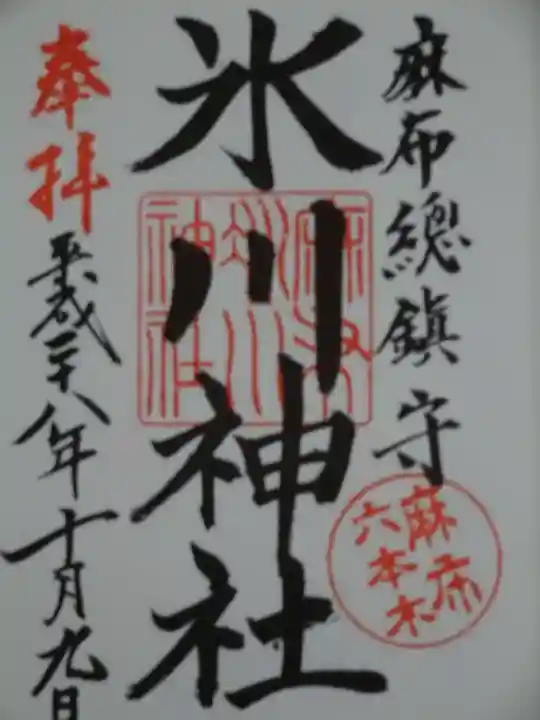 麻布總鎮守
氷川神社
奉拝
平成二十八年十月九日
麻布氷川神社
麻布
六本木